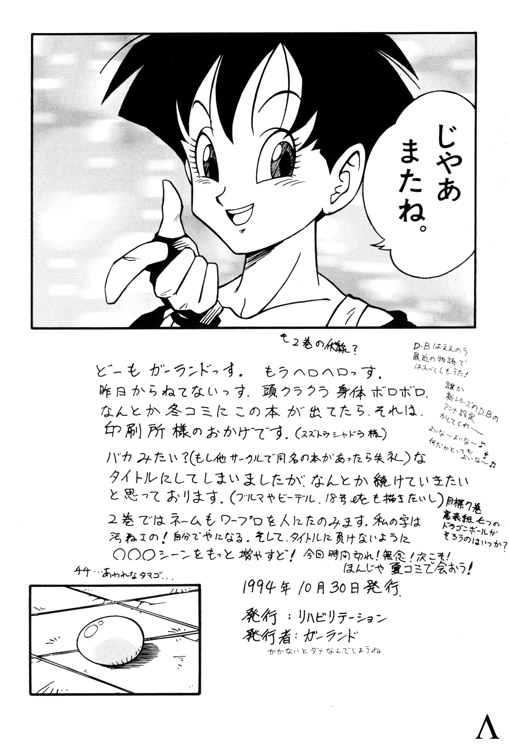 じゃあ
またね。
も2巻の伏線?
どーも ガーランドっす。 もうヘロヘロっす。
昨日からねてないっす、頭クラクラ 身体 ボロボロ、
なんとか 冬コミに この本が 出てたら、それは、
印刷所様のおかげです。(スズトウシャドウ様)
バカみたい?(もし他サークルで同名の本があったら失礼)な
タイトルにしてしまいましたが、なんとか 続けていきたい
と思っております。(ブルマやビーデル、18号etcも描きたいし)
2巻ではネームもワープロを人にたのみます。私の字は
自分でやになる。そして、タイトルに負けないように
○○○シーンをもっと増やすど! 今日時間切れ!無念!次こそ!
ほんじゃ 夏コミで会おう!
D・Bはええのう
最近の物語で
誰か
新シリーズのD.Bの
アニメ設定
かしてくれ〜
よいな〜よいな〜♪
目標7巻
ドラゴンボールが
そろうのはいつか?
44…あわれなタマゴ…
1994年10月30日発行
発行:リハビリテーション
発行者:ガーランド
かかないとダメなんでしょうね